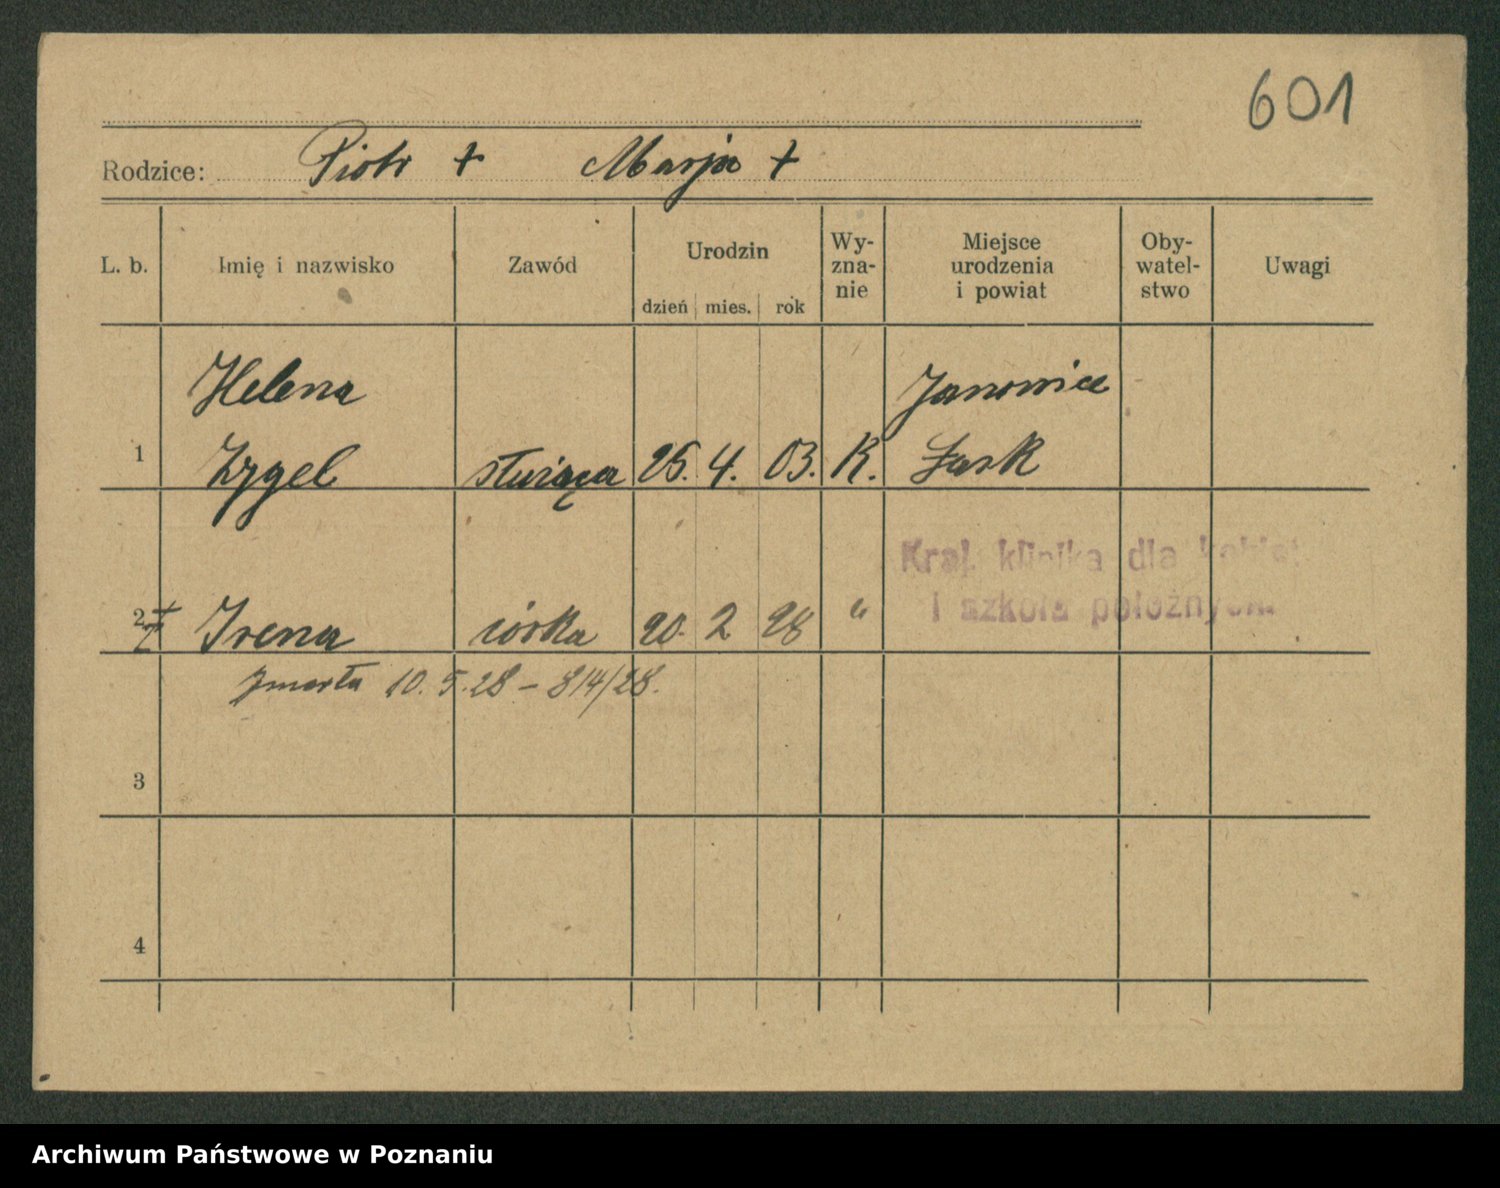 601
Rodzice: Piotr + Marja +
L. b. Imię i nazwisko Zawód Urodzin dzień mies. rok Wy-zna-nie Miejsce urodzenia i powiat Oby-watel-stwo Uwagi
Helena Janowice
1 Zygel służąca 25. 4. 03. K. Łask
Kraj. klinika dla kobiet
i szkoła położnych.
2 Irena córka 20. 2 28 "
zmarła 10. 5. 28 – 814/28.
3
4
Archiwum Państwowe w Poznaniu